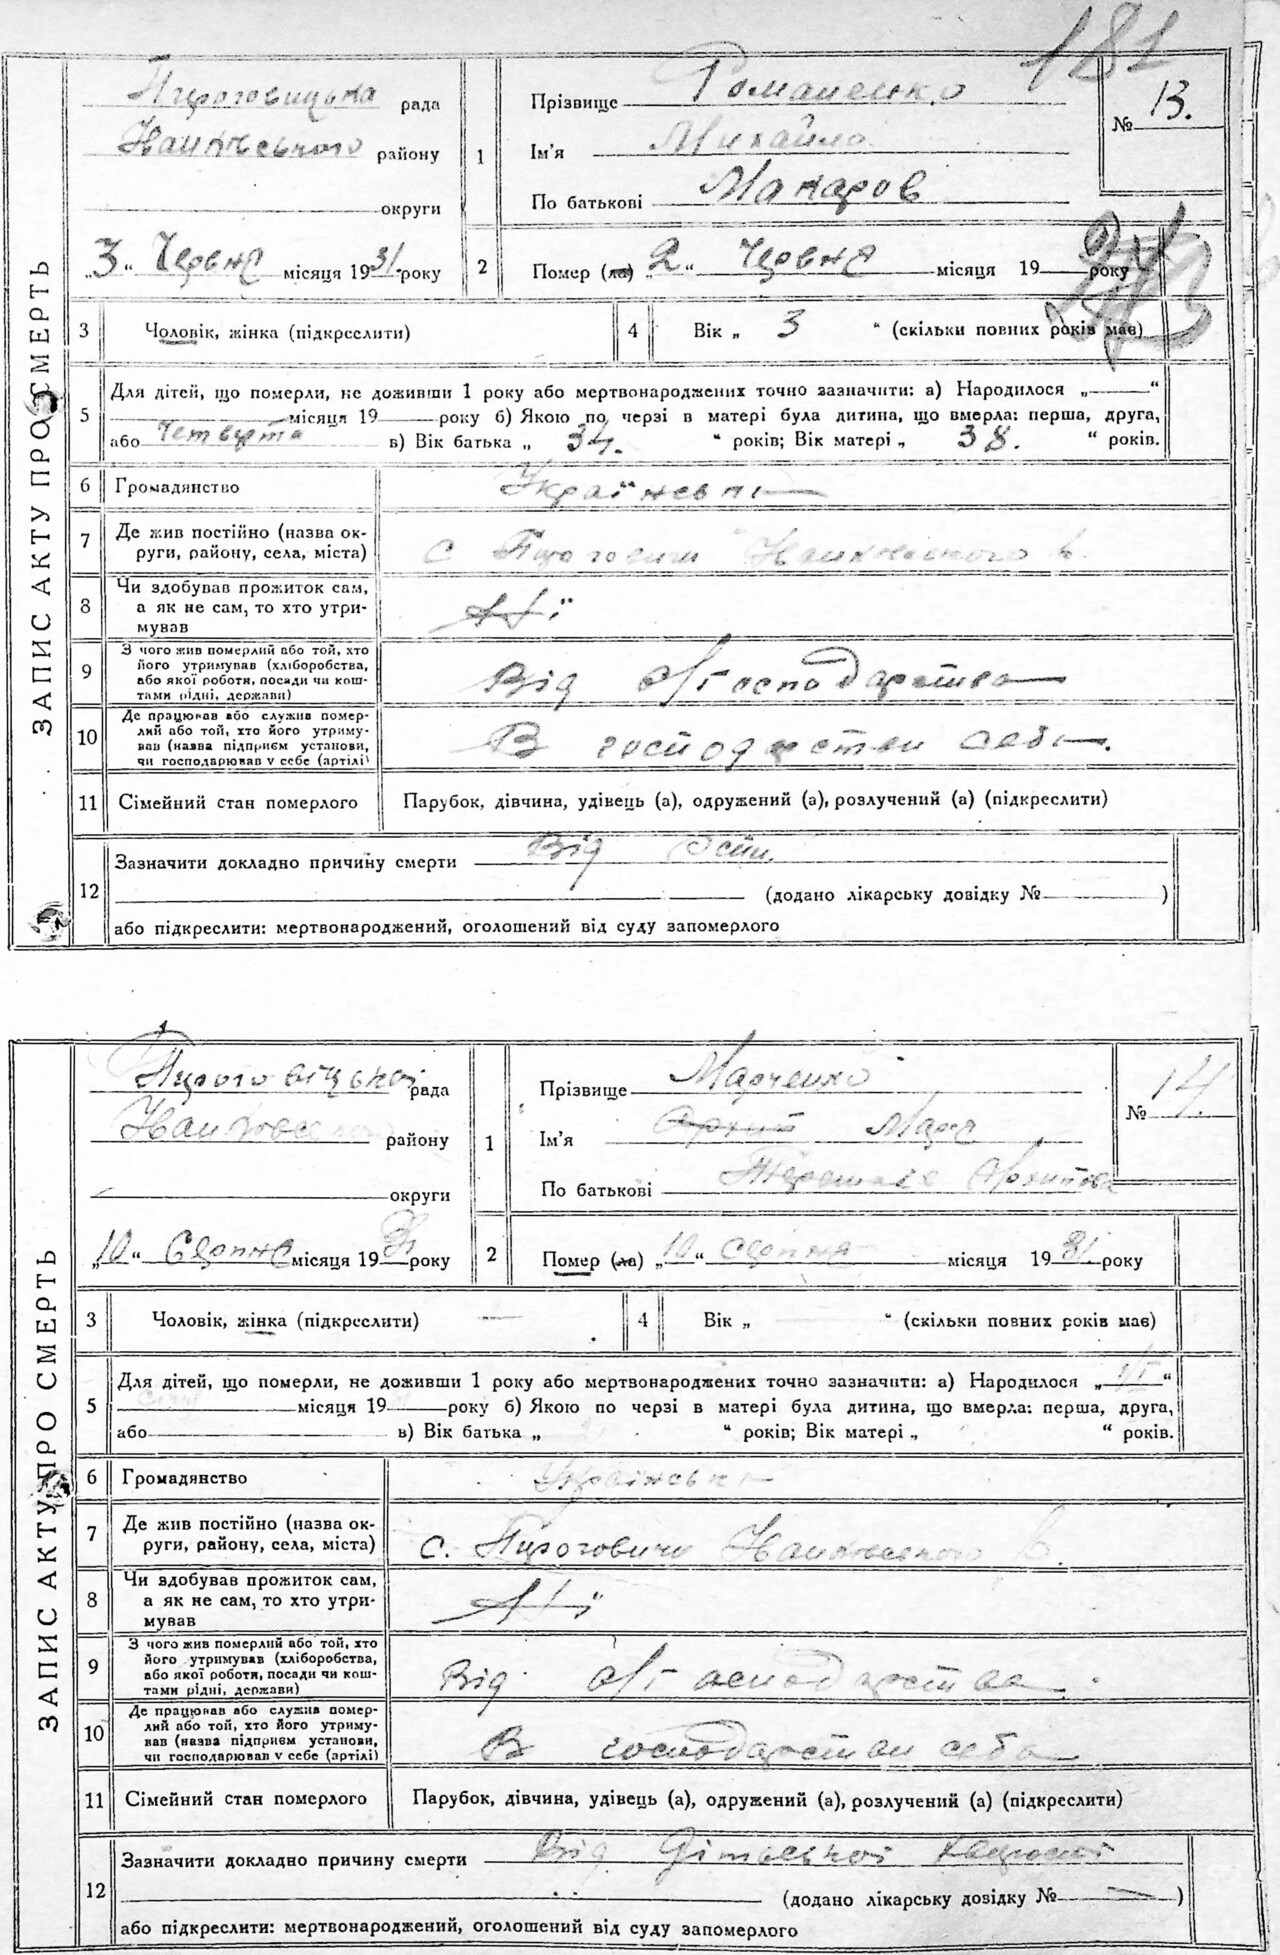 181
ЗАПИС АКТУ ПРО СМЕРТЬ
Пироговицька рада
Іванківського району
округи
„3“ Червня місяця 1931 року
1
Прізвище Романенко
Ім’я Михайло
По батькові Макаров
№ 13.
2
Помер (ла) „2“ Червня місяця 19 року
3 Чоловік, жінка (підкреслити)
4 Вік „ 3 “ (скільки повних років має)
5 Для дітей, що померли, не доживши 1 року або мертвонароджених точно зазначити: а) Народилося „——“
місяця 19——року б) Якою по черзі в матері була дитина, що вмерла: перша, друга,
або четверта в) Вік батька „ 34. “ років; Вік матері „ 38. “ років.
6 Громадянство
7 Де жив постійно (назва ок-
руги, району, села, міста) с Пироговичи Іванковського р.
8 Чи здобував прожиток сам,
а як не сам, то хто утри-
мував
9 З чого жив померлий або той, хто
його утримував (хліборобства,
або якої роботи, посади чи кош-
тами рідні, держави)
Від с/господарства
10 Де працював або служив помер-
лий або той, хто його утриму-
вав (назва підприєм установи,
чи господарював у себе (артілі)
В господарстви себе.
11 Сімейний стан померлого Парубок, дівчина, удівець (а), одружений (а), розлучений (а) (підкреслити)
12 Зазначити докладно причину смерти Від
(додано лікарську довідку №——)
або підкреслити: мертвонароджений, оголошений від суду запомерлого
ЗАПИС АКТУ ПРО СМЕРТЬ
Пироговіцької рада
Іванковсь району
округи
„10“ Серпня місяця 1931 року
1
Прізвище Марченко
Ім’я Архип
По батькові Архипова
№ 14.
2
Помер (ла) „10“ серпня місяця 1931. року
3 Чоловік, жінка (підкреслити) —
4 Вік „ “ (скільки повних років має)
5 Для дітей, що померли, не доживши 1 року або мертвонароджених точно зазначити: а) Народилося „ “
місяця 19——року б) Якою по черзі в матері була дитина, що вмерла: перша, друга,
або в) Вік батька „ “ років; Вік матері „ “ років.
6 Громадянство
7 Де жив постійно (назва ок-
руги, району, села, міста) с. Пироговичи Іванковського р.
8 Чи здобував прожиток сам,
а як не сам, то хто утри-
мував
9 З чого жив померлий або той, хто
його утримував (хліборобства,
або якої роботи, посади чи кош-
тами рідні, держави)
Від с/господарства
10 Де працював або служив помер-
лий або той, хто його утриму-
вав (назва підприєм установи,
чи господарював у себе (артілі)
В господарстви себе
11 Сімейний стан померлого Парубок, дівчина, удівець (а), одружений (а), розлучений (а) (підкреслити)
12 Зазначити докладно причину смерти Від
(додано лікарську довідку №——)
або підкреслити: мертвонароджений, оголошений від суду запомерлого